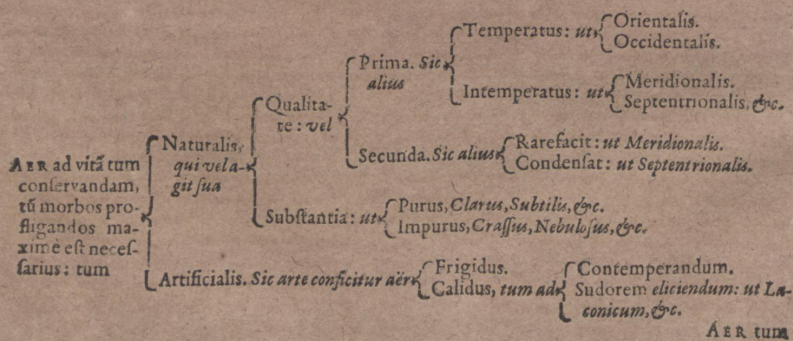 AER ad vitã tum
conservandam,
tũ morbos pro-
fligandos ma-
ximè est neces-
sarius: tum
Naturalis,
qui vel a-
git sua
Qualita-
te: vel
Prima. Sic
alius
Temperatus: ut
Orientalis.
Occidentalis.
Intemperatus: ut
Meridionalis.
Septentrionalis, &c.
Secunda. Sic alius
Rarefacit: ut Meridionalis.
Condensat: ut Septentrionalis.
Substantia: ut
Purus, Clarus, Subtilis, &c.
Impurus, Crassus, Nebulosus, &c.
Artificialis. Sic arte conficitur aër
Frigidus.
Calidus, tum ad
Contemperandum.
Sudorem eliciendum: ut La-
conicum, &c.
AER tum